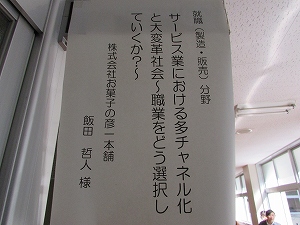 就職（製造・販売）分野
サービス業における多チャネル化
と大変革社会～職業をどう選択し
ていくか？～
株式会社お菓子の彦一本舗
飯田 哲人 様